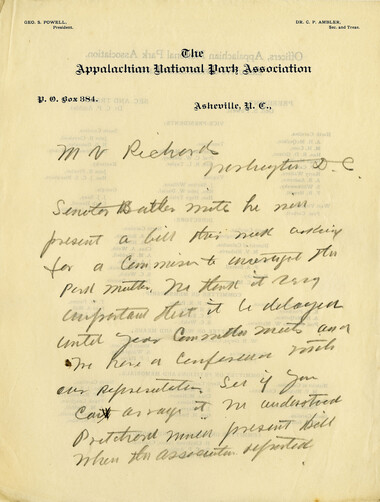 GEO. S. POWELL,
President.
DR. C. P. AMBLER,
Sec. and Treas.
The
Appalachian National Park Association
P. O. Box 384.
Asheville, N. C.,
M V Richards
Washington D. C.
Senator Butler wrote he will
present a bill this week asking
for a Commission to investigate this
Park matter. We think it very
important that it be delayed
until your Committee meets and
We have a Conference with
our representatives. See if you
Can't arrange it. We understood
Pritchard would present bill
when the association reported